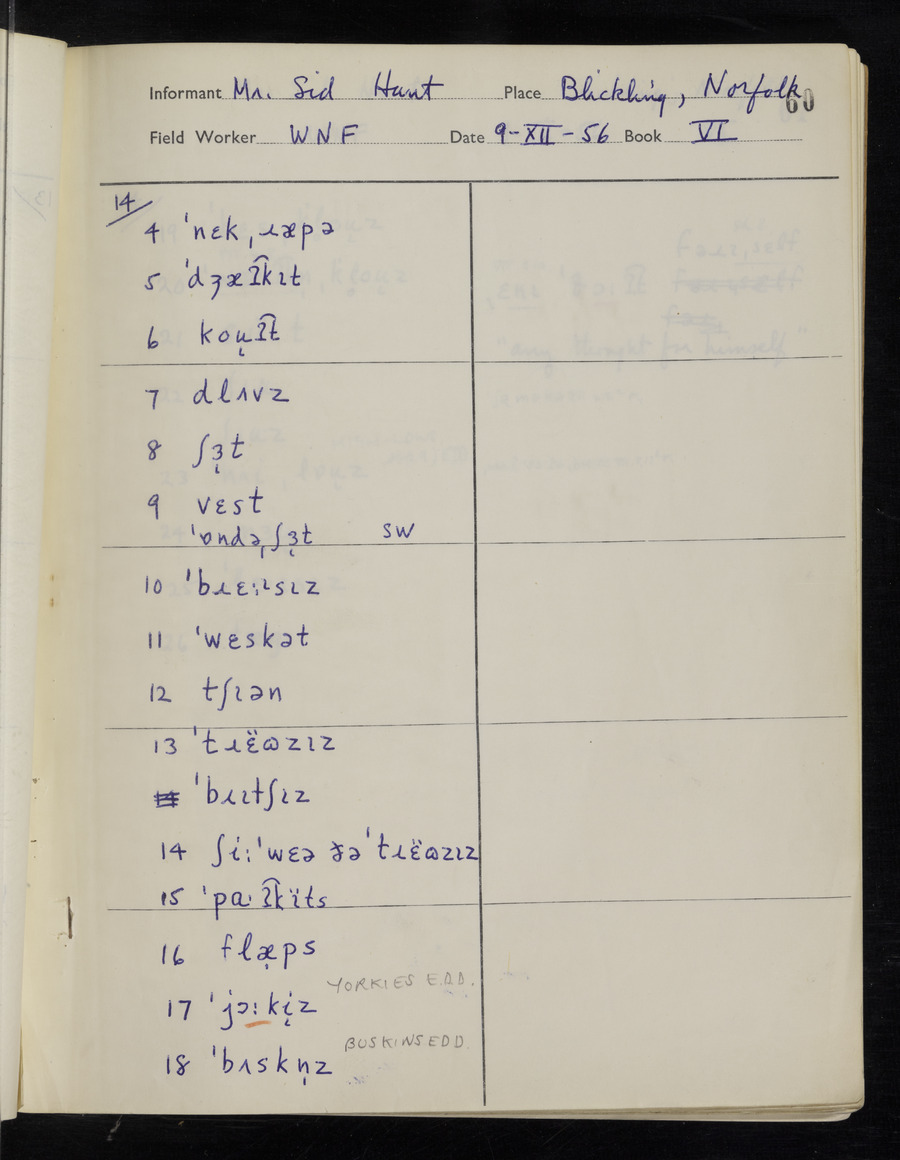 Informant Mr. Sid Hunt Place Blickling, Norfolk
60
Field Worker WNF Date 9-XII-56 Book VI
14/
4 ˈnɛkˌɹæpə
5 ˈdʒæʔ͡kɪt
6 kou̜ʔ͡t
7 dlʌvz
8 ʃɜ̜t
9 vɛst
ˈɒndəˌʃɜ̜t SW
10 ˈbɹɛːᶦsɪz
11 ˈwɛskət
12 tʃɪən
13 ˈtɹɛ̈ɷzɪz
ˈbɹɪtʃɪz
14 ʃiːˈwɛə ðəˈtɹɛ̈ɷzɪz
15 ˈpaˑʔ͡kɪ̈ts
16 flæ̣ps
YORKIES E.D.D.
17 ˈjɔːki̜z
BUSKINS EDD
18 ˈbʌskn̩z